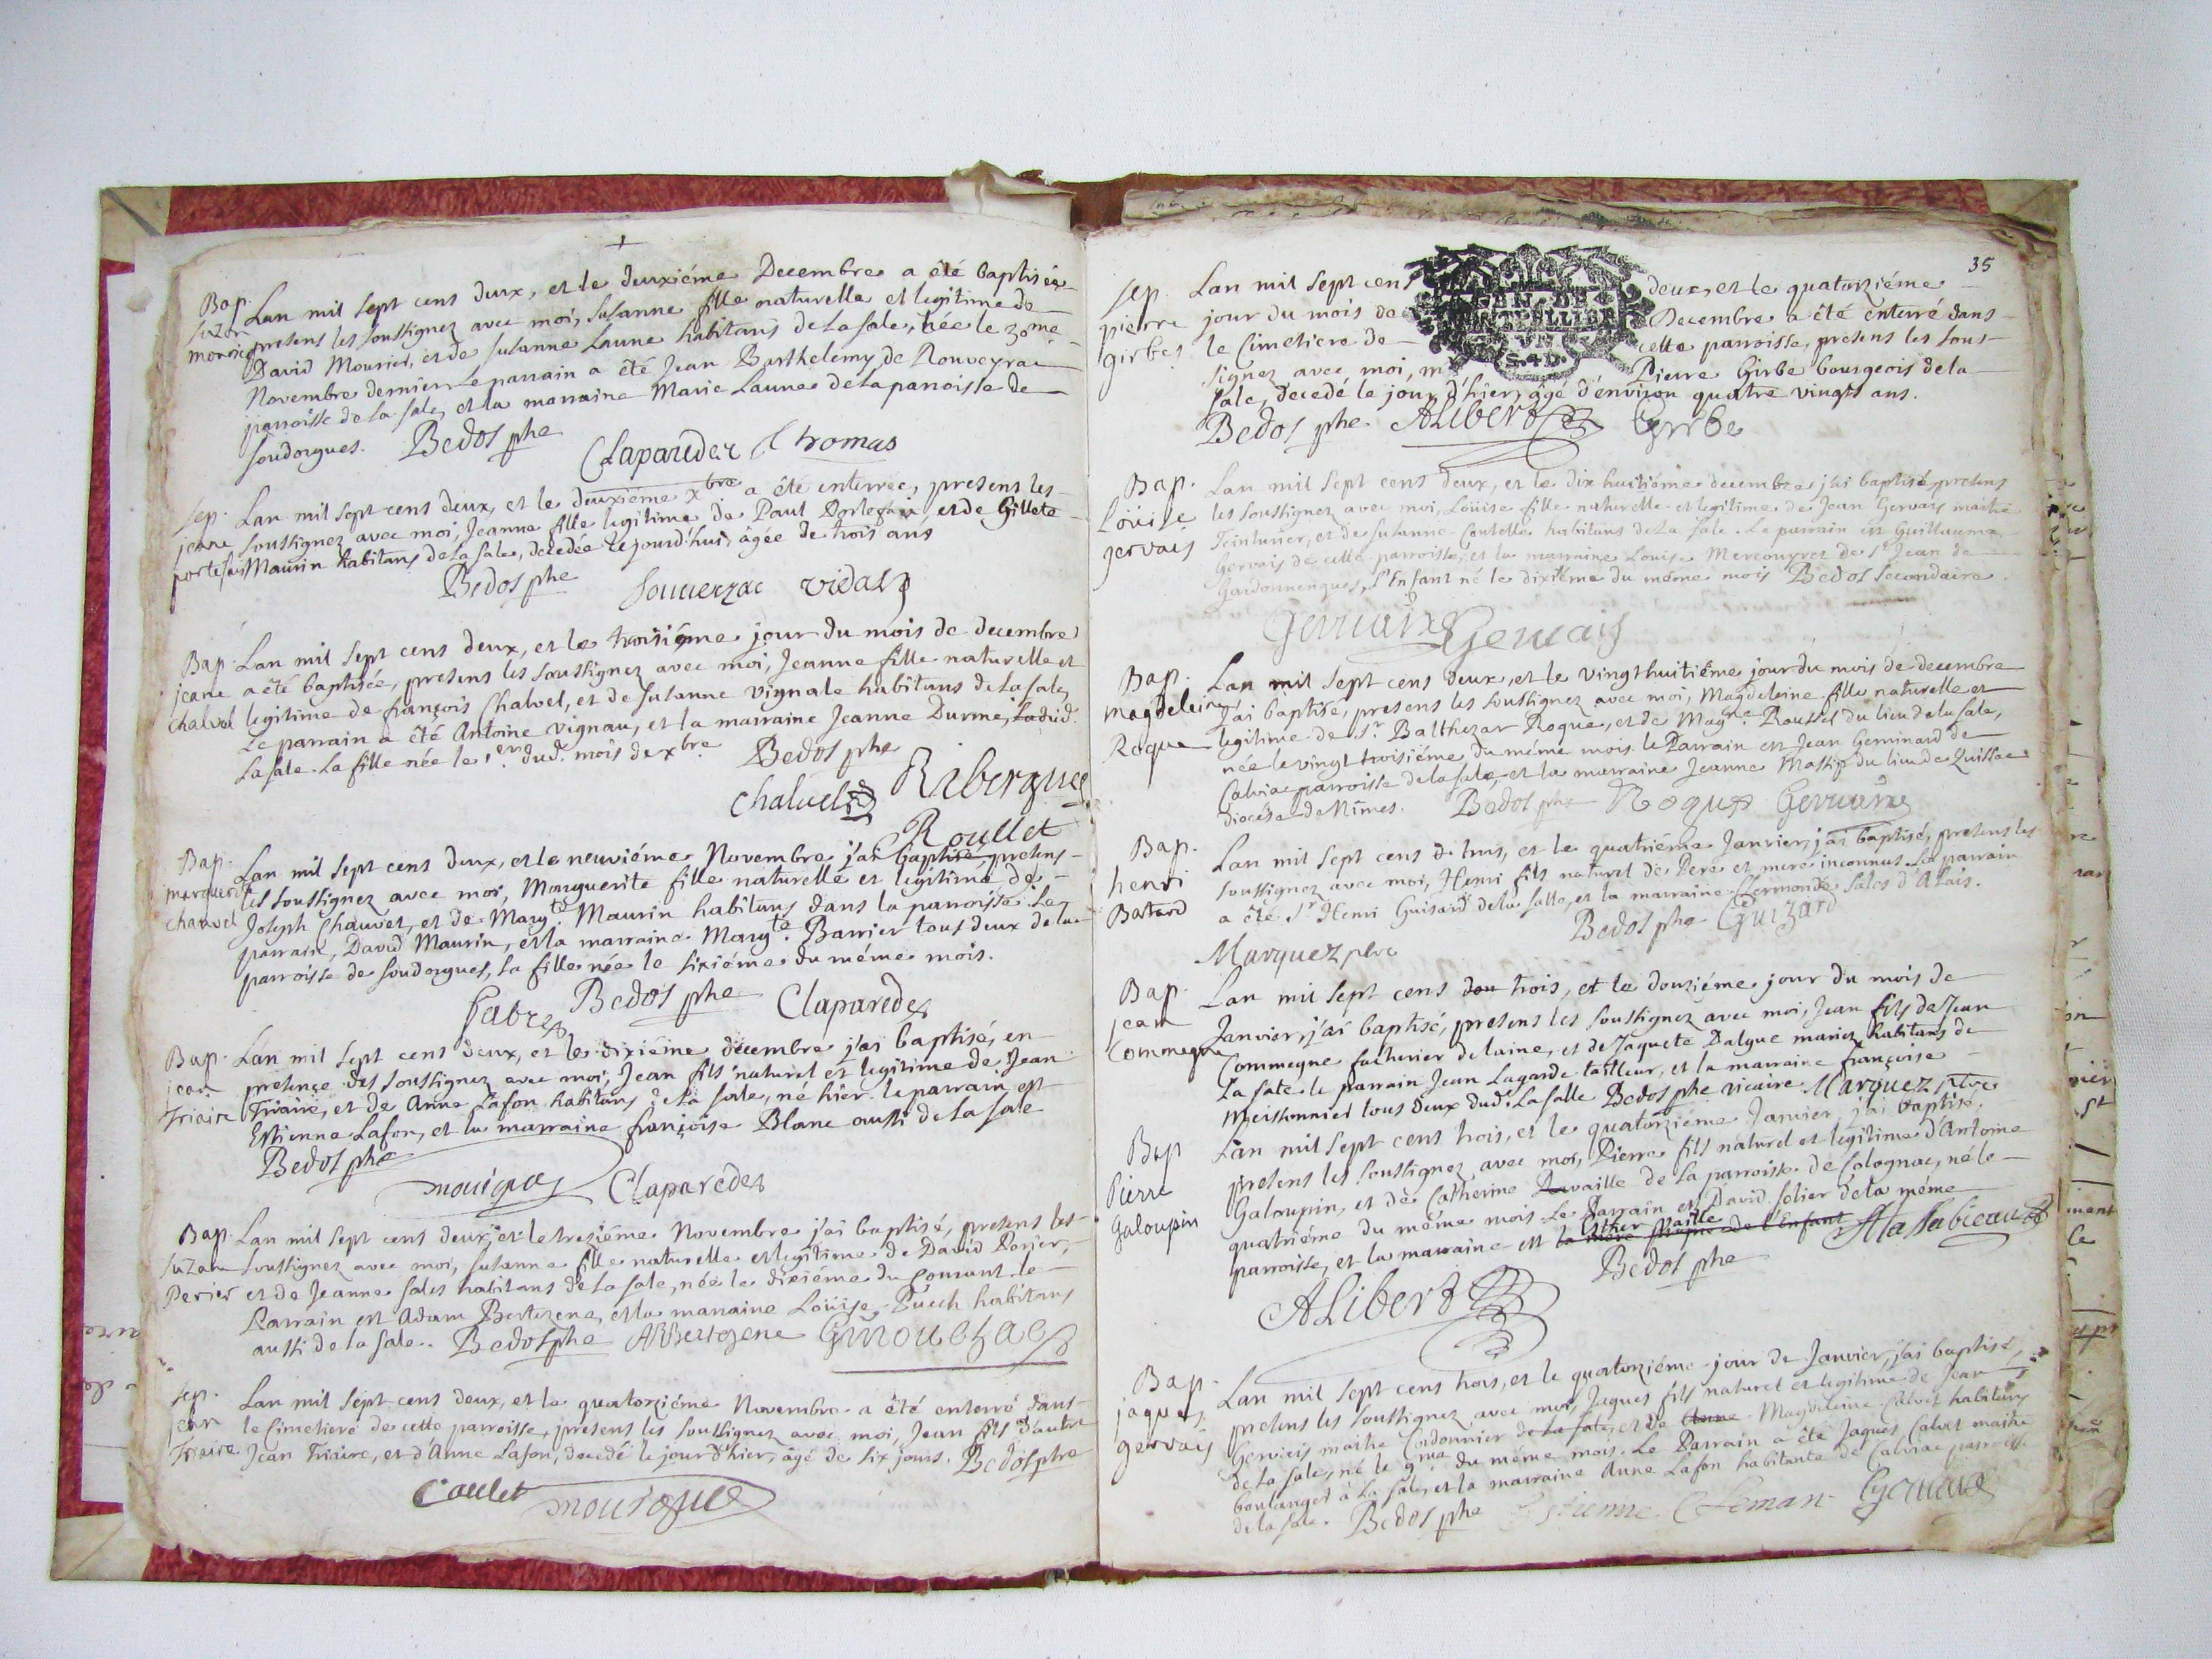 Bap. Lan mil sept cens deux, et le deuxiéme Decembre a été baptisée
suzon presens les soussignez avec moi, Susanne fille naturelle et legitime de
mourier David Mourier, et de Susanne Laune habitans de la sale, née le 30me
Novembre dernier Le parrain a été Jean Barthelemy de Rouveyrac
parroisse de la sale, et la marraine Marie Laune de la parroisse de
soudorgues. Bedos phe Claparedez Thomas
sep. Lan mil sept cens deux, et le deuxiéme xbre a été enterrée, presens les
jeanne soussignez avec moi, Jeanne fille legitime de Paul Portefaix et de Gillete
portefais Maurin habitans de la sale, decedée le jourd'hui, âgée de trois ans
Bedos phe Souverzac vidal
Bap. Lan mil sept cens deux, et le troisiéme jour du mois de decembre
jeane a été baptisée, presens les soussignez avec moi, Jeanne fille naturelle et
chalvel legitime de françois Chalvel, et de Susanne vignale habitans de la sale,
Le parrain a été Antoine vignau, et la marraine Jeanne Durme, dudit
La sale. La fille née le 1er. dud. mois de xbre Bedos phe
chaluel Ribergue
Roullet
Bap. Lan mil sept cens deux, et le neuviéme Novembre j'ai baptisé, presens
marguerite les soussignez avec moi, Marguerite fille naturelle et legitime de
chauvel Joseph Chauvet, et de Margte. Maurin habitans dans la parroisse. Le
parrain, David Maurin, et la marraine Margte. Barrier tous deux de la
parroisse de soudorgues, la fille née le sixiéme du même mois.
fabre Bedos phe Claparedez
Bap. Lan mil sept cens deux, et le dixiéme décembre j'ai baptisé, en
jean presence des soussignez avec moi, Jean fils naturel et legitime de Jean
Triaire Triaire, et de Anne Lafon habitans de la sale, né hier. le parrain est
Estienne Lafon, et la marraine françoise Blanc aussi de la sale
Bedos phe
mourgue Claparedez
Bap. Lan mil sept cens deux, et le treziéme Novembre j'ai baptisé, presens les
suzane soussignez avec moi, Susanne fille naturelle et legitime de David Perier,
Perier et de Jeanne Sales habitans de la sale, née le dixiéme du Courant. le
Parrain est Adam Bertezene, et la marraine Loüise Puech habitans
aussi de la sale. Bedos phe ABBertezene Ginouchac
sep. Lan mil sept cens deux, et le quatorziéme Novembre a été enterré dans
jean le Cimetiere de cette parroisse, presens les soussignez avec moi, Jean fils d'autre
Triaire Jean Triaire, et d'Anne Lafon, decedé le jour d'hier, âgé de six jours. Bedos phe
Caulet mourgue
35
sep. Lan mil sept cens deux, et le quatorziéme
pierre jour du mois de Decembre a été enterré dans
girbes le Cimetiere de cette parroisse, presens les sous-
signez avec moi, Pierre Girbe bourgeois de la
sale, decedé le jour d'hier, âgé d'environ quatre vingts ans.
Bedos phe. ALiBert Girbe
Bap. Lan mil sept cens deux, et le dix huitiéme decembre j'ai baptisé, presens
Loüise les soussignez avec moi, Loüise fille naturelle et legitime de Jean Gervais maitre
gervais Teinturier, et de Susanne Coutelle habitans de La sale. Le parrain est Guillaume
Gervais de cette parroisse, et la marraine Louise Mercouyrez de St Jean de
Gardonnenques, L'Enfant né le dixiéme du même mois Bedos secondaire.
Gervaix Gervais
Bap. Lan mil sept cens deux, et le vingt huitiéme jour du mois de decembre
magdeleine J'ai baptisé, presens les soussignez avec moi, Magdeleine fille naturelle et
Roque legitime de Sr. Balthezar Roque, et de Magne. Roussel du lieu de la sale,
née le vingt troisiéme du même mois. le Parrain est Jean Geminard de
Calviac parroisse de la sale, et la marraine Jeanne Massip du lieu de Quissac
diocése de Nîmes. Bedos phe Roque Gervaix
Bap. Lan mil sept cens de trois, et le quatriéme Janvier, j'ai baptisé, presens les
henri soussignez avec moi, Henri fils naturel de Pere et mere inconnus. Le parrain
Batard a été Sr Henri Guisard de la salle, et la marraine Clermonde Sales d'Alais.
Bedos phe Guizard
Marquez ptre
Bap. Lan mil sept cens dou trois, et le douziéme jour du mois de
jean Janvier, j'ai baptisé, presens les soussignez avec moi, Jean fils de Jean
Commegne Commegne facturier de laine, et de Jaquete Dalgue mariez habitans de
La sale. le parrain Jean Lagarde tailleur, et la marraine françoise
Meissonnier tous deux dud. La salle Bedos phe vicaire. Marquez ptre
Bap Lan mil sept cens trois, et le quatorziéme Janvier, j'ai baptisé,
Pierre presens les soussignez avec moi, Pierre fils naturel et legitime d'Antoine
Galoupin Galoupin, et de Catherine Navaille de la parroisse de Colognac, né le
quatriéme du même mois Le Parrain est David Solier de la même
parroisse, et la marraine est Esther Vaille la mére de l'Enfant
ALibert Bedos phe
Bap. Lan mil sept cens trois, et le quatorziéme jour de Janvier, j'ai baptisé,
jaques presens les soussignez avec moi, Jaques fils naturel et legitime de Jean
gervais Gervais maitre Cordonnier de la sale, et de Anne Magdeleine Salvet habitans
de la sale, né le 9me du même mois. Le Parrain a été Jaques Calvet maitre
boulanger à la sale, et la marraine Anne Lafon habitante de Calviac parroisse
de la sale. Bedos phe Estienne Leman Gervais